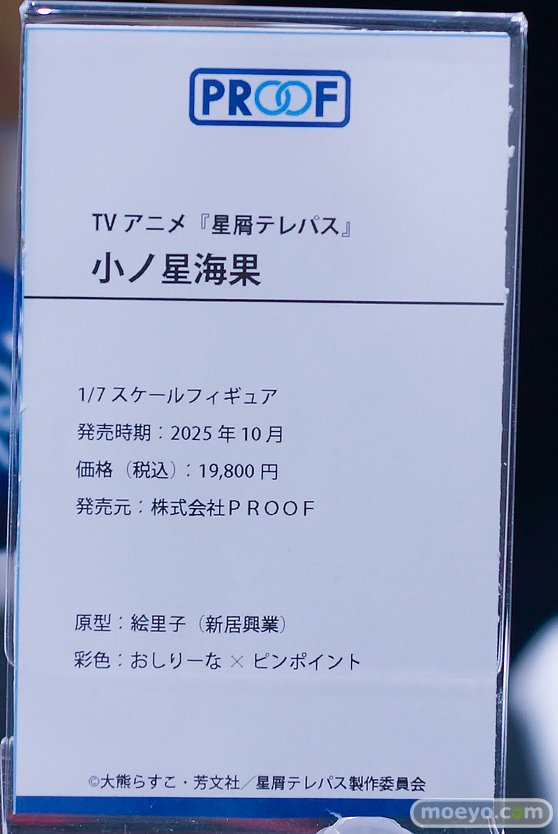 PROOF
TVアニメ『星屑テレパス』
小ノ星海果
1/7 スケールフィギュア
発売時期：2025 年 10 月
価格（税込）：19,800 円
発売元：株式会社ＰＲＯＯＦ
原型：絵里子（新居興業）
彩色：おしりーな × ピンポイント
©大熊らすこ・芳文社／星屑テレパス製作委員会
moeyo.com